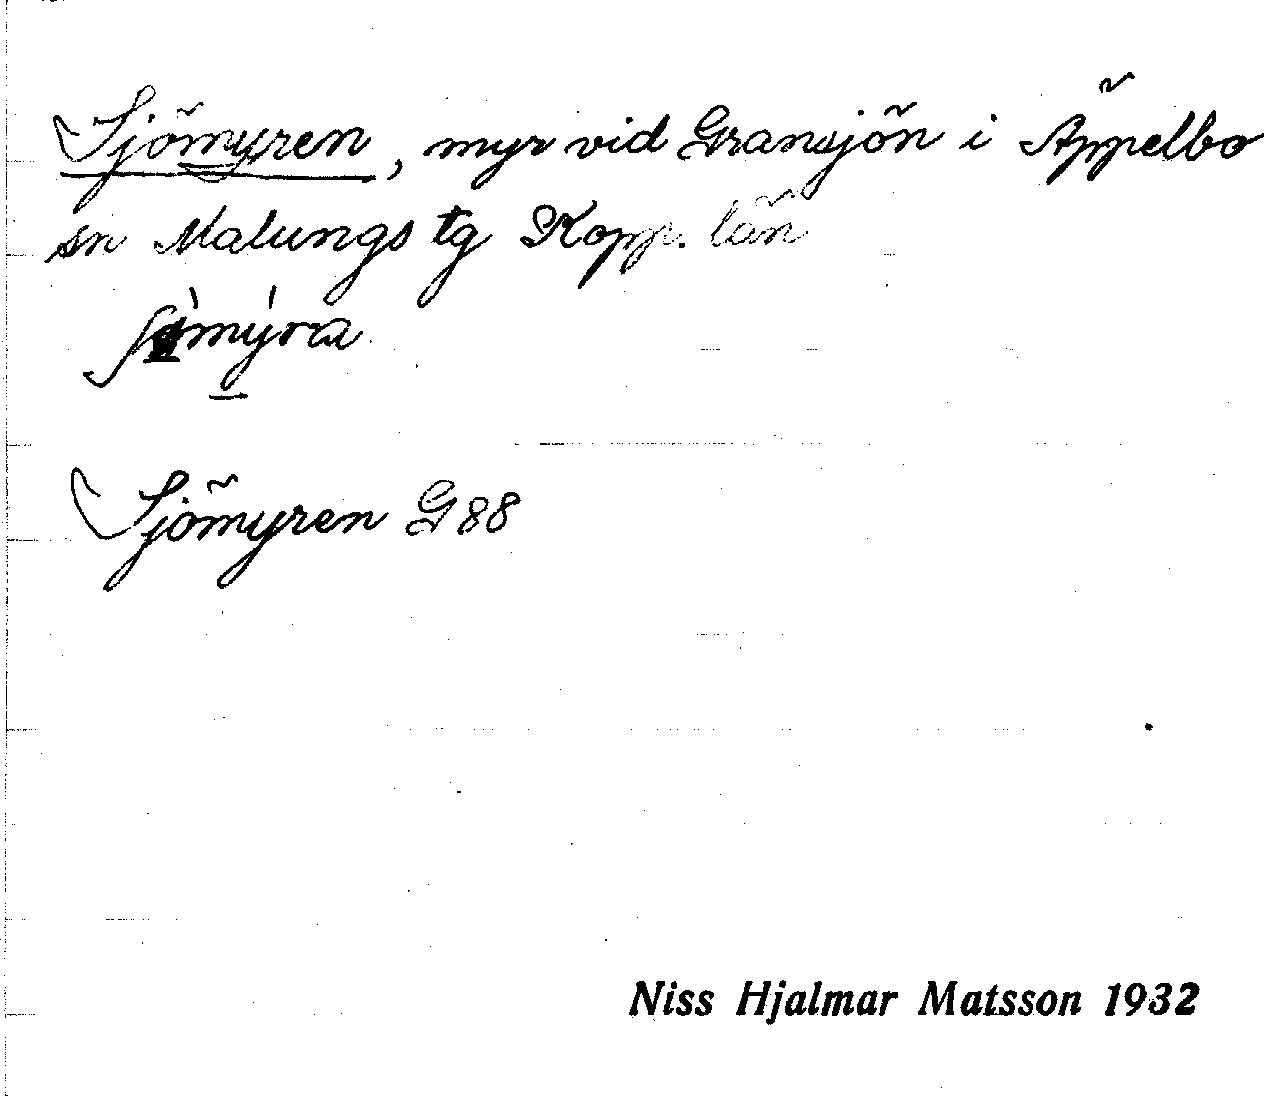 Sjömyren, myr vid Gransjön i Äppelbo
sn Malungs tg Kopp. län
Sjömyren G 88
Niss Hjalmar Matsson 1932